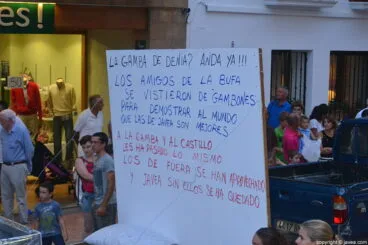 es!
LA GAMBA DE DENIA? ANDA YA!!!
LOS AMIGOS DE LA BUFA
SE VISTIERON DE GAMBONES
PARA DEMOSTRAR AL MUNDO
QUE LAS DE JAVEA SON MEJORES.
A LA GAMBA Y AL CASTILLO
LES HA PASADO LO MISMO
LOS DE FUERA SE HAN APROPIADO
Y JAVEA SIN ELLOS SE HA QUEDADO